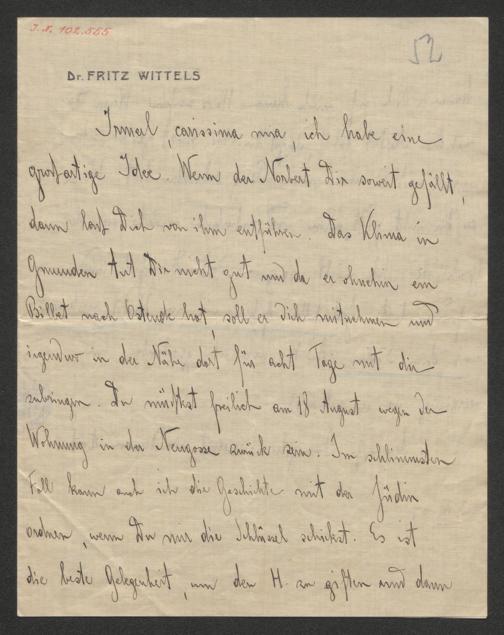 I.N. 102.555
52
Dr. FRITZ WITTELS
Irmerl, carissima mia, ich habe eine
großartige Idee. Wenn der Norbert Dir soweit gefällt,
dann laß Dich von ihm entführen. Das Klima in
Gmunden tut Dir nicht gut und da er ohnehin ein
Billet nach Ostende hat, soll er dich mitnehmen und
irgendwo in der Nähe dort für acht Tage mit dir
zubringen. Du müßtest freilich am 18 August wegen der
Wohnung in der Neugasse zurück sein. Im schlimmsten
Fall kann auch ich die Geschichte mit der Jüdin
ordnen, wenn Du mir die Schlüssel schickst. Es ist
die beste Gelegenheit, um den H. zu giften und dann